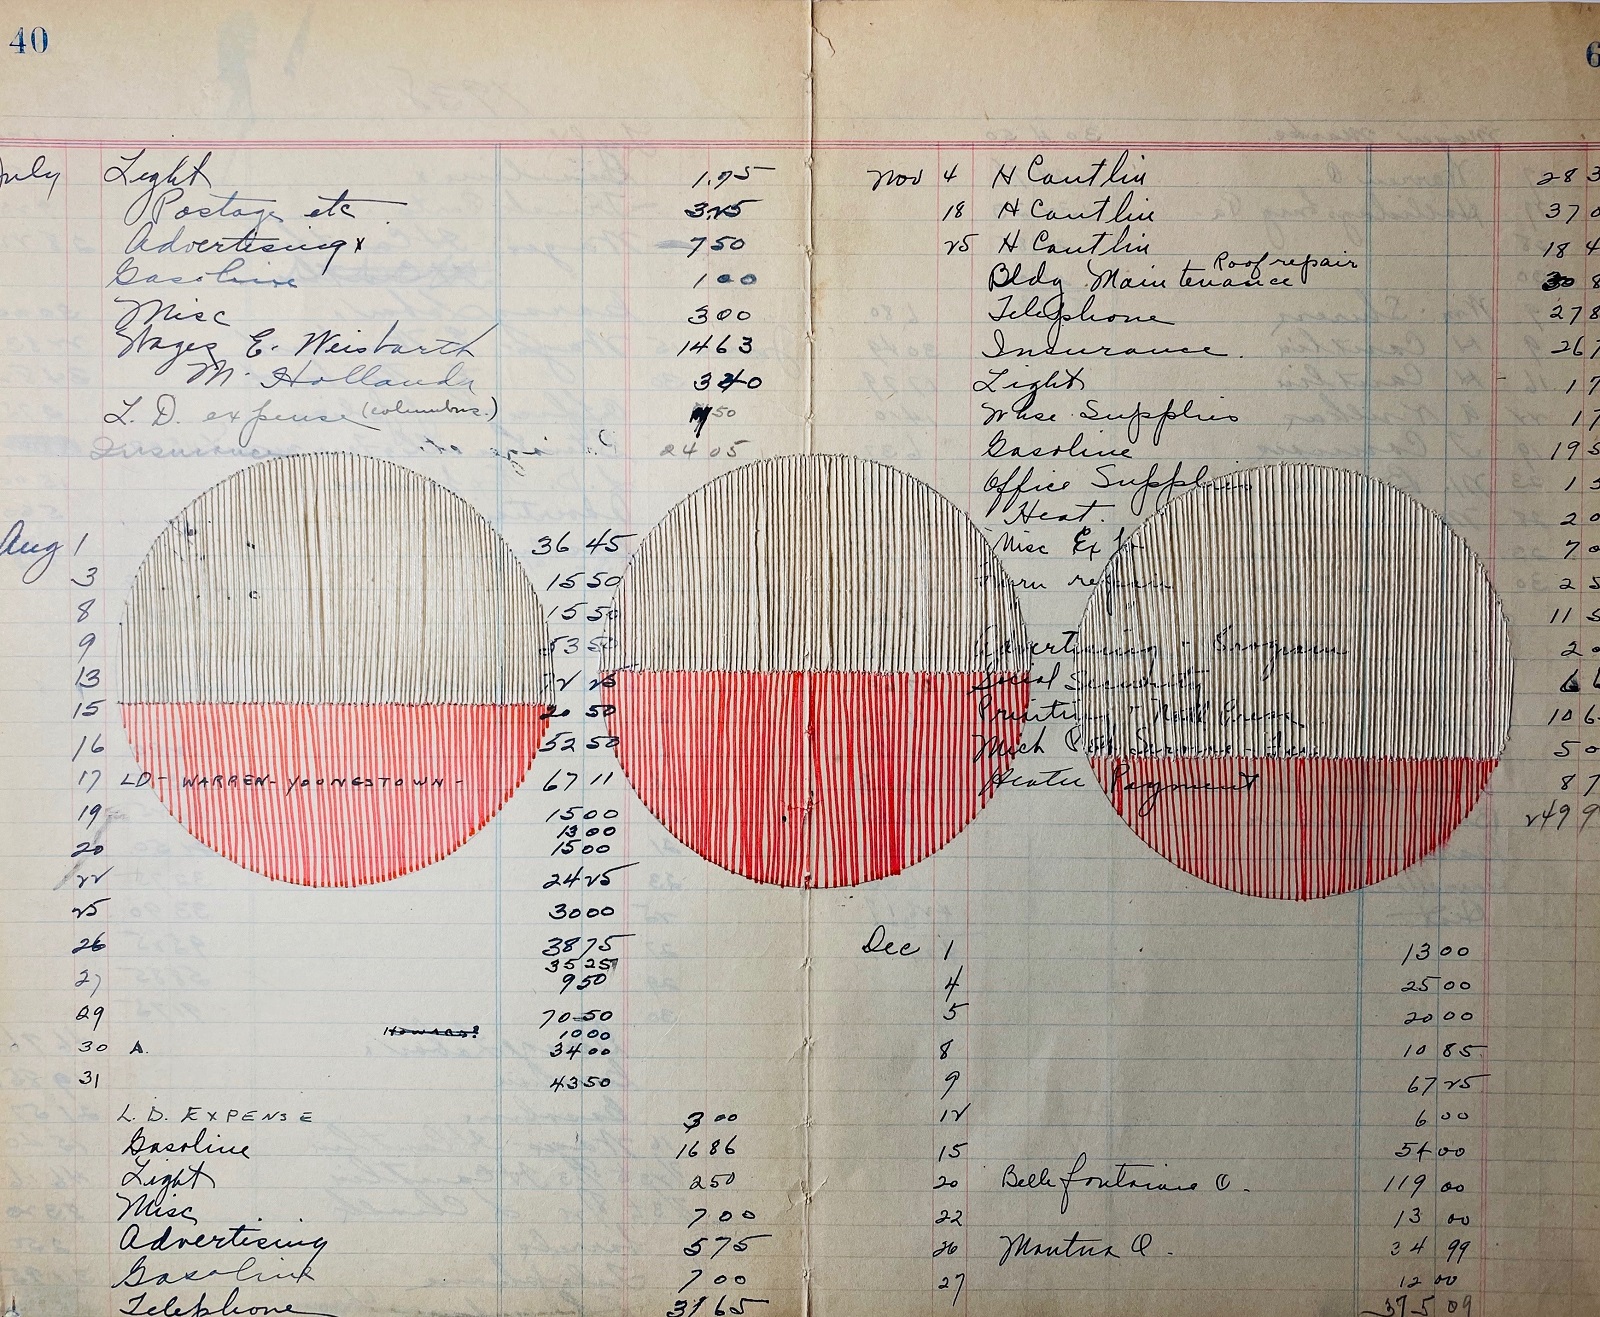 40
July Light 1.75
Postage etc. 3.25
Advertising x 7 50
Gasoline 1 00
Misc 3 00
Wages E. Weisbarth 14 63
M. Hollanda
L. D. expense (columbus.) 50
Insurance 24 05
Aug 1 36 45
3 15 50
8 15 50
9 53 50
13 25
15 20 50
16 52 50
17 LD - WARREN - YOONGSTOWN - 67 11
19 15 00
13 00
20 15 00
22 24 25
25 30 00
26 38 75
35 25
27 9 50
29 70-50
HOWARD? 10 00
30 A. 34 00
31 43 50
L. D. EXPENSE 3 00
Gasoline 16 86
Light 2 50
Misc 7 00
Advertising 5 75
Gasoline 7 00
Telephone 31 65
6
Nov 4 H Cautlin 28 3
18 H Cautlin 37 0
25 H Cautlin 18 4
Roof repair
Bldg. Maintenance 30 8
Telephone 27 8
Insurance. 26 7
Light 17
Whse. Supplies 17
Gasoline 19 5
Office Supplies 1 5
Heat. 2 0
Misc Ex 7 0
2 5
11 5
Advertising - Program 2 0
Social Security 6
Printing 10 6
Mich 5 0
Heater Payment 8 7
249 9
Dec 1 13 00
4 25 00
5 20 00
8 10 85
9 67 25
12 6 00
15 54 00
20 Bellefontaine O. 119 00
22 13 00
26 Mantua O. 34 99
27 12 00
375 09